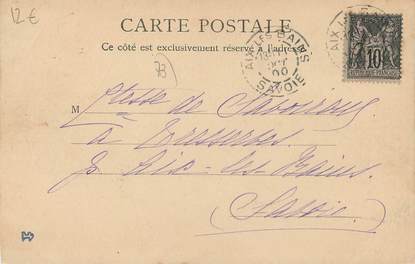 12 €
CARTE POSTALE
Ce côté est exclusivement réservé à l'adresse
73
AIX-LES-BAINS
OCT
00
SAVOIE
10
REPUBLIQUE FRANÇAISE
M
Ctesse de
à Tresserves
p. Aix-les-Bains
(Savoie)